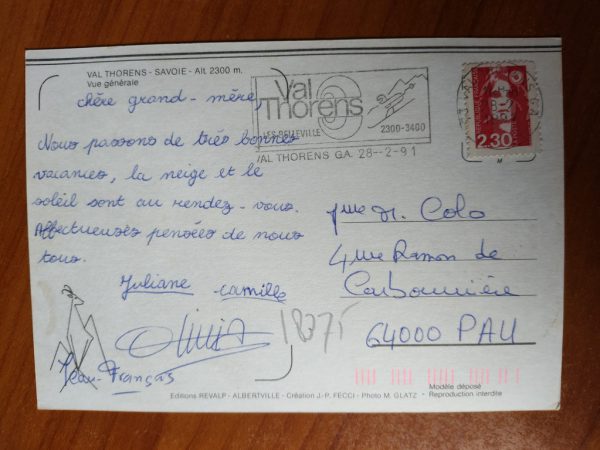 VAL THORENS - SAVOIE - Alt. 2300 m.
Vue générale
chère grand-mère,
Nous passons de très bonnes
vacances, la neige et le
soleil sont au rendez-vous.
Affectueuses pensées de nous
tous.
Juliane Camille
Olivier
Jean-François
Val
Thorens
LES BELLEVILLE
2300-3400
VAL THORENS G.A. 28--2-91
2.30
M. Colo
4 rue Ramon de
Carbonnière
64000 PAU
18075
Modèle déposé
Editions REVALP - ALBERTVILLE - Création J.-P. FECCI - Photo M. GLATZ - Reproduction interdite